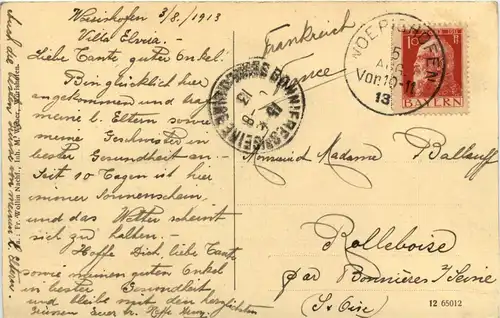 Wörishofen 3/8./1913
Villa Elvira.-
Liebe Tante, guter Onkel!
Bin glücklich hier
angekommen und traf
meine l. Eltern sowie
meine Geschwister in
bester Gesundheit an.-
Seit 10 Tagen ist hier
immer Sonnenschein,
und das Wetter scheint
sich zu halten.-
Hoffe Dich, liebe Tante
sowie meinen guten Onkel
in bester Gesundheit
und bleibe mit den herzlichsten
Grüssen Euer tr. Neffe
auch die von meinen l. Eltern.
Fr. Wolfin Nachf., Inh. M. Wörishofen.
Frankreich
France
WOERISHOFEN
5
AUG
Vor. 10-11
13
10
BAYERN
BONNIERES
SEINE
13
Monsieur Madame Ballauff
Rolleboise
par Bonnières s/Seine
(S. & Oise)
12 65012